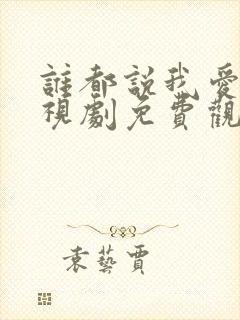 誰都説我愛
視劇免費觀
袁藝賈